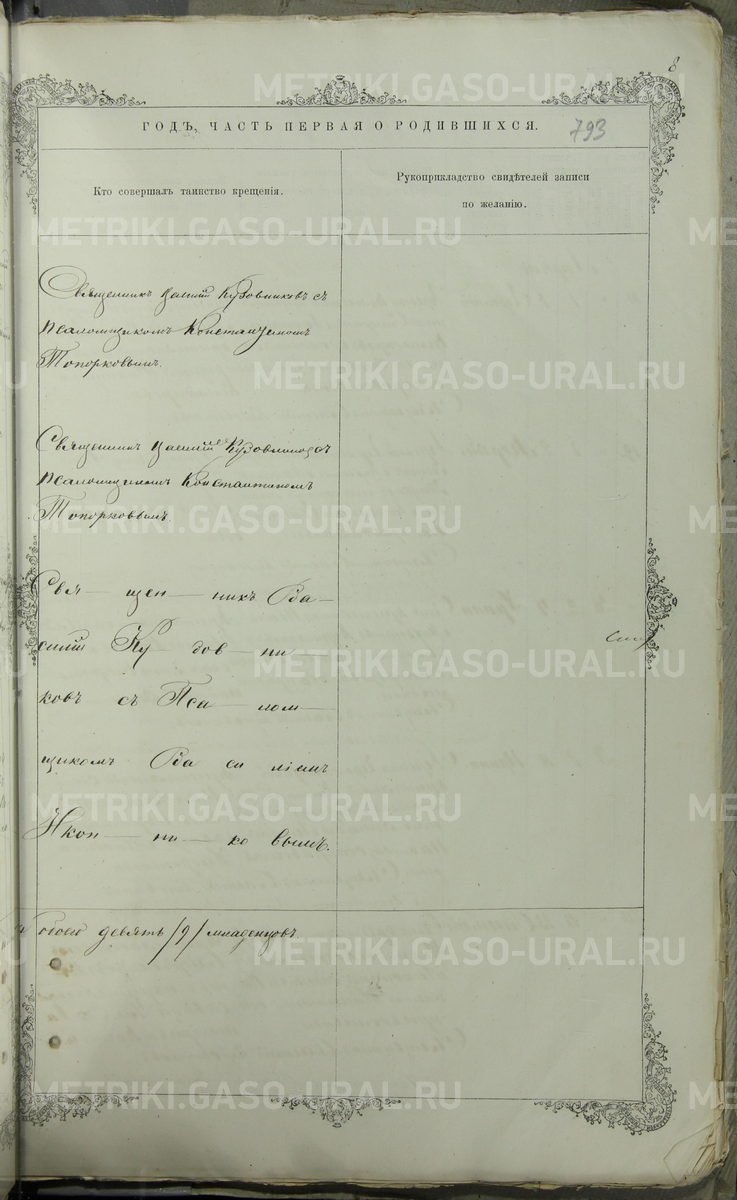 8
ГОДЪ, ЧАСТЬ ПЕРВАЯ О РОДИВШИХСЯ.
793
Кто совершалъ таинство крещенія.
Рукоприкладство свидѣтелей записи
по желанію.
Священникъ Василій Кудовниковъ съ
Псаломщикомъ Константиномъ
Топорковымъ.
Священникъ Василій Кудовниковъ съ
Псаломщикомъ Константиномъ
Топорковымъ.
Свя— щен— никъ Ва—
силій Ку— дов— ни—
ковъ съ Пса— лом—
щикомъ Ва си ліемъ
Икон— ни— ко вымъ.
обоего девять /9/ младенцовъ.
METRIKI.GASO-URAL.RU